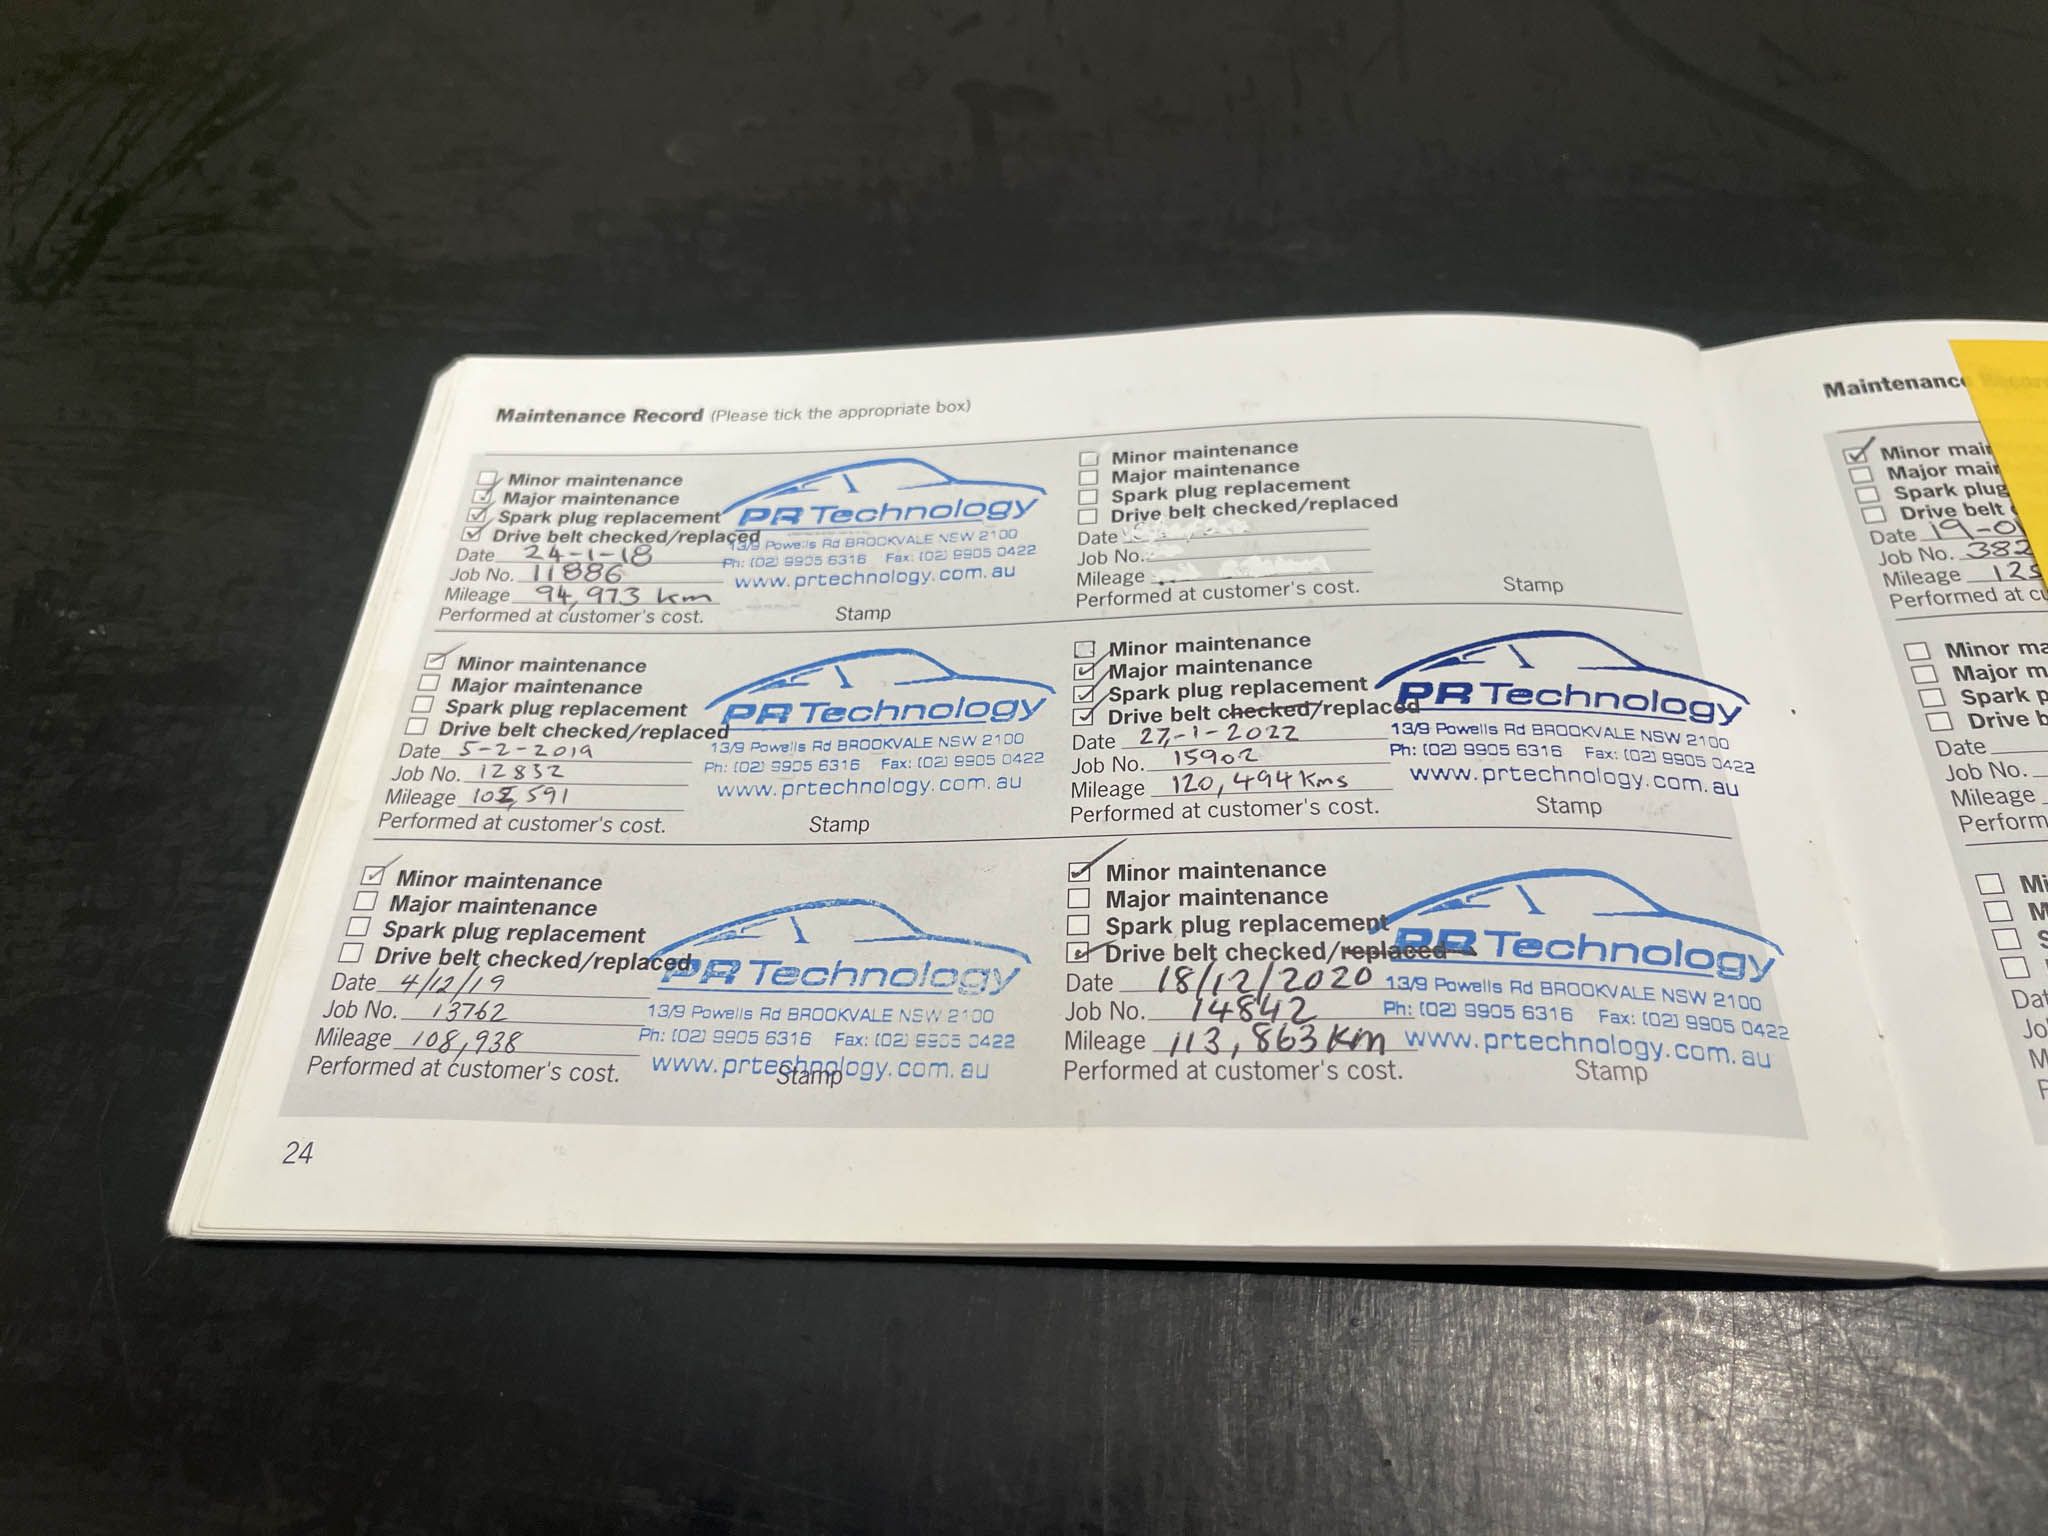 Maintenance Record (Please tick the appropriate box)
Minor maintenance
Major maintenance
Spark plug replacement
Drive belt checked/replaced
Date 24-1-18
Job No. 11886
Mileage 94,973 km
Performed at customer's cost.
PR Technology
13/9 Powells Rd BROOKVALE NSW 2100
Ph: (02) 9905 6316 Fax: (02) 9905 0422
www.prtechnology.com.au
Stamp
Minor maintenance
Major maintenance
Spark plug replacement
Drive belt checked/replaced
Date 5-2-2019
Job No. 12832
Mileage
Performed at customer's cost.
PR Technology
13/9 Powells Rd BROOKVALE NSW 2100
Ph: (02) 9905 6316 Fax: (02) 9905 0422
www.prtechnology.com.au
Stamp
Minor maintenance
Major maintenance
Spark plug replacement
Drive belt checked/replaced
Date 4/12/19
Job No. 13762
Mileage 108,938
Performed at customer's cost.
PR Technology
13/9 Powells Rd BROOKVALE NSW 2100
Ph: (02) 9905 6316 Fax: (02) 9905 0422
www.prtechnology.com.au
Stamp
24
Minor maintenance
Major maintenance
Spark plug replacement
Drive belt checked/replaced
Date
Job No.
Mileage
Performed at customer's cost.
Stamp
Minor maintenance
Major maintenance
Spark plug replacement
Drive belt checked/replaced
Date 27-1-2022
Job No. 15902
Mileage 120,494 Kms
Performed at customer's cost.
PR Technology
13/9 Powells Rd BROOKVALE NSW 2100
Ph: (02) 9905 6316 Fax: (02) 9905 0422
www.prtechnology.com.au
Stamp
Minor maintenance
Major maintenance
Spark plug replacement
Drive belt checked/replaced
Date 18/12/2020
Job No. 14842
Mileage 113,863 km
Performed at customer's cost.
PR Technology
13/9 Powells Rd BROOKVALE NSW 2100
Ph: (02) 9905 6316 Fax: (02) 9905 0422
www.prtechnology.com.au
Stamp
Maintenance
Minor mai
Major mai
Spark plug
Drive belt
Date 19-0
Job No. 382
Mileage 125
Performed at cu
Minor ma
Major m
Spark p
Drive b
Date
Job No.
Mileage
Perform
Mi
M
S
Dat
Jo
M
P